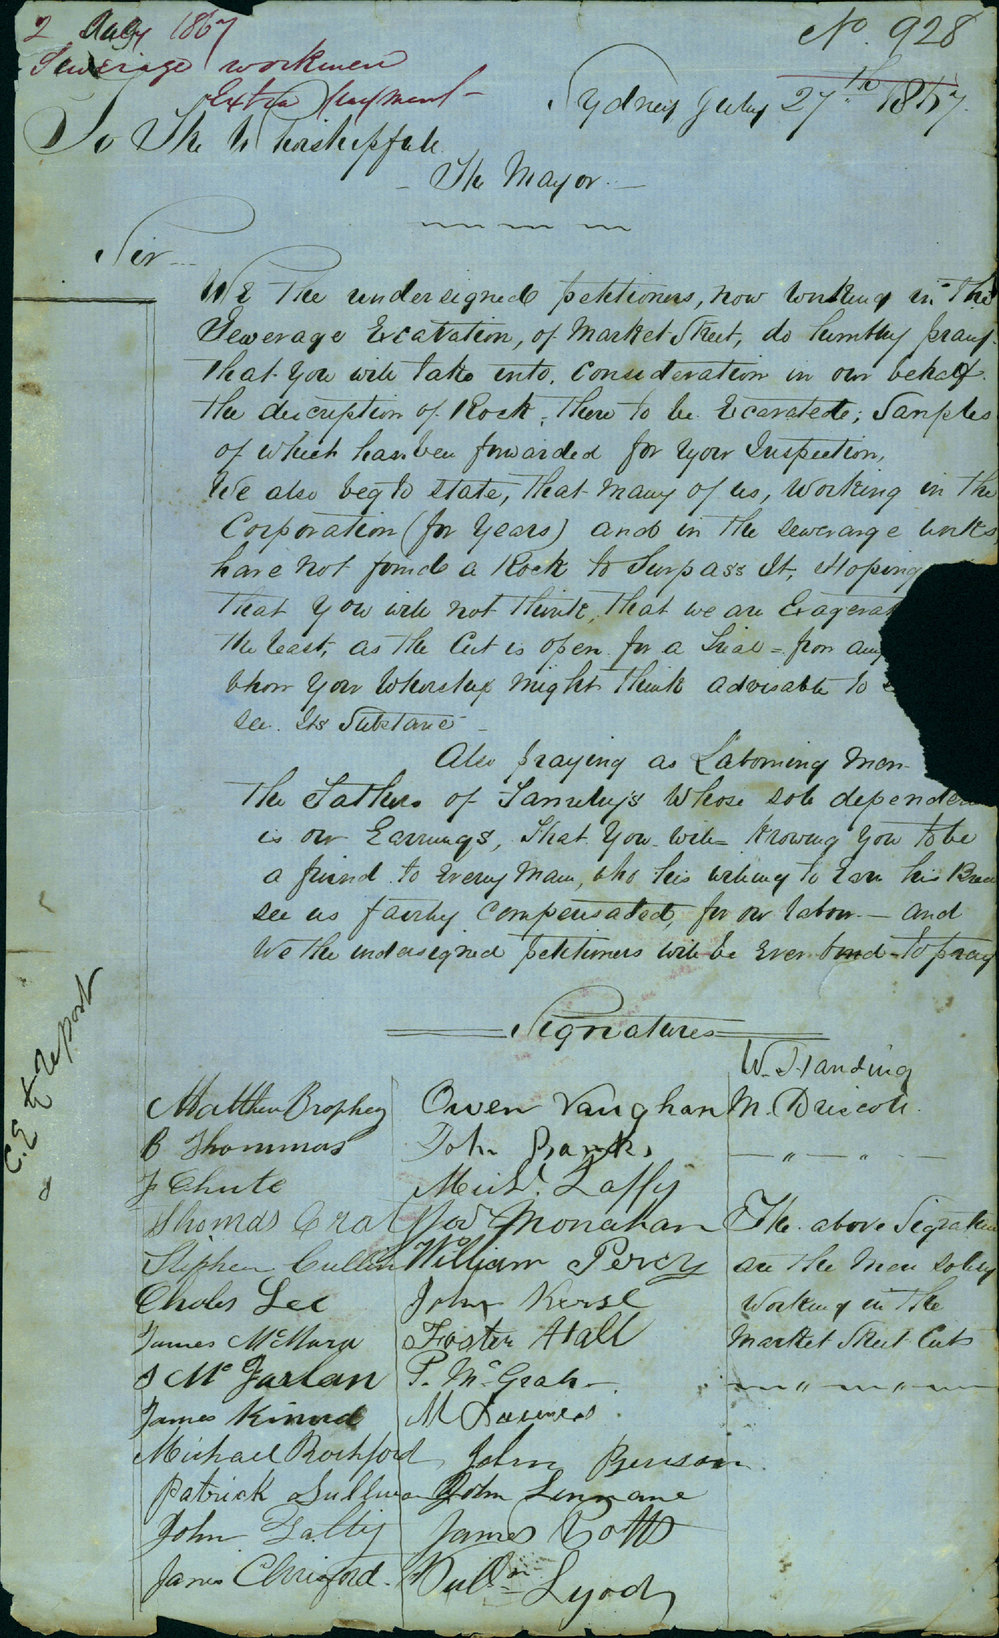 2 July 1857
No. 928
Sewerage workmen
Extra payment
Sydney July 27th 1857.
To The Whorshipfull
The Mayor.
Sir
We The undersigned petitioners, now working in The
Sewerage Excavation, of Market Street, do humbly pray
that You will take into consideration in our behalf
the discription of Rock, there to be Excavated; Samples
of which has been forwarded for Your Inspection,
We also beg to state, that many of us, Working in the
Corporation (for Years) and in the sewerarge works
have not found a Rock to Surpass It, Hoping
that You will not think, that we are Exagerat
the least, as the Cut is open for a Trial = from any
whom Your Whorship might think advisable to
see Its Substance
Also praying as Labouring Men
the Fathers of Familuys Whose sole dependen
is our Earnings, that You will knowing You to be
a friend to Every Man, who his willing to Earn his Bread
see us fairly Compensated, for our labour — and
We the undersigned petitioners will be Ever bound to pray
Signatures
W. Standing
Matthew Brophey Owen Vaughan M. Driscoll
B Thommas John Banks
J Chute Michl. Laffy
Thomas Cra Monahan The above Signature
Stephen Cullin William Percy are the Men solely
Charles Lee John Kerse Working in the
James McMara Foster Hall Market Street Cut
J McFarlan P. McGrah
James Kinnd M
Michael Rochford John Benson
Patrick Sullivan John Linnane
John Falty James Potts
James Lyody
C.E to report